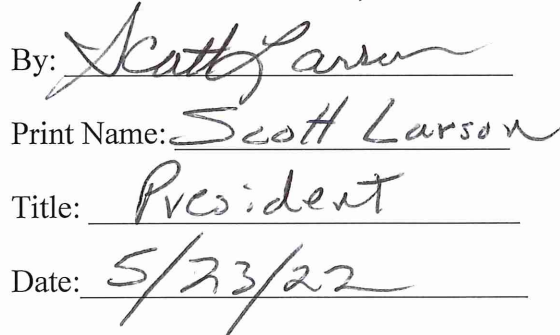 By: Scott Larson
Print Name: Scott Larson
Title: President
Date: 5/23/22